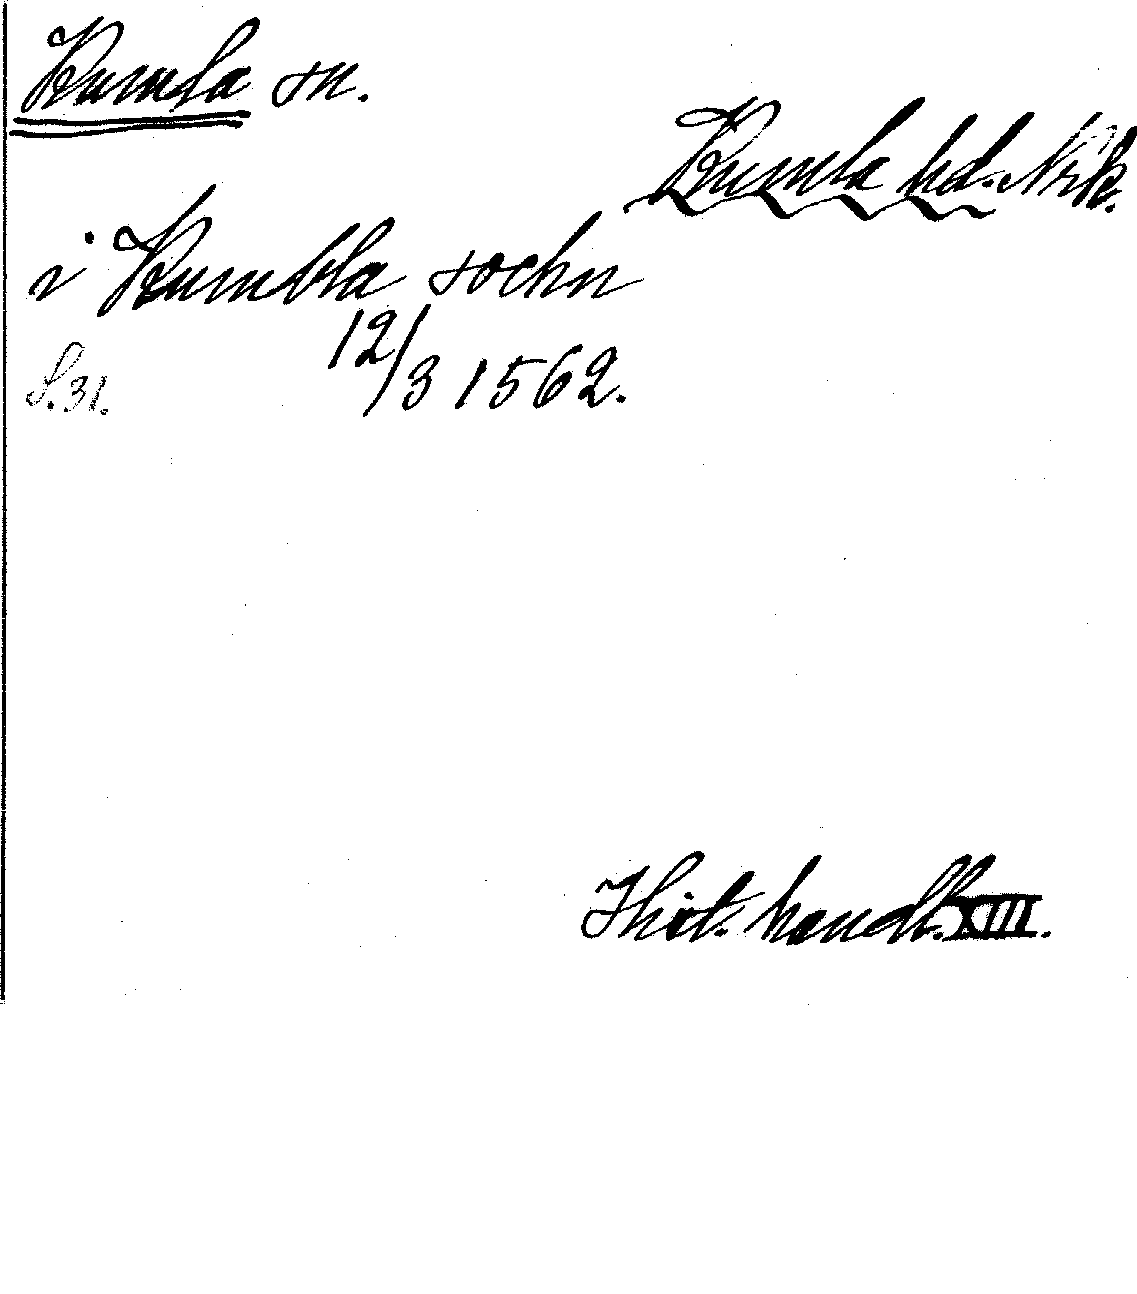 Kumla sn.
Kumla hd. Nrk.
i Kumbla sochn
12/3 1562.
S. 31.
Hist. handl. XIII.